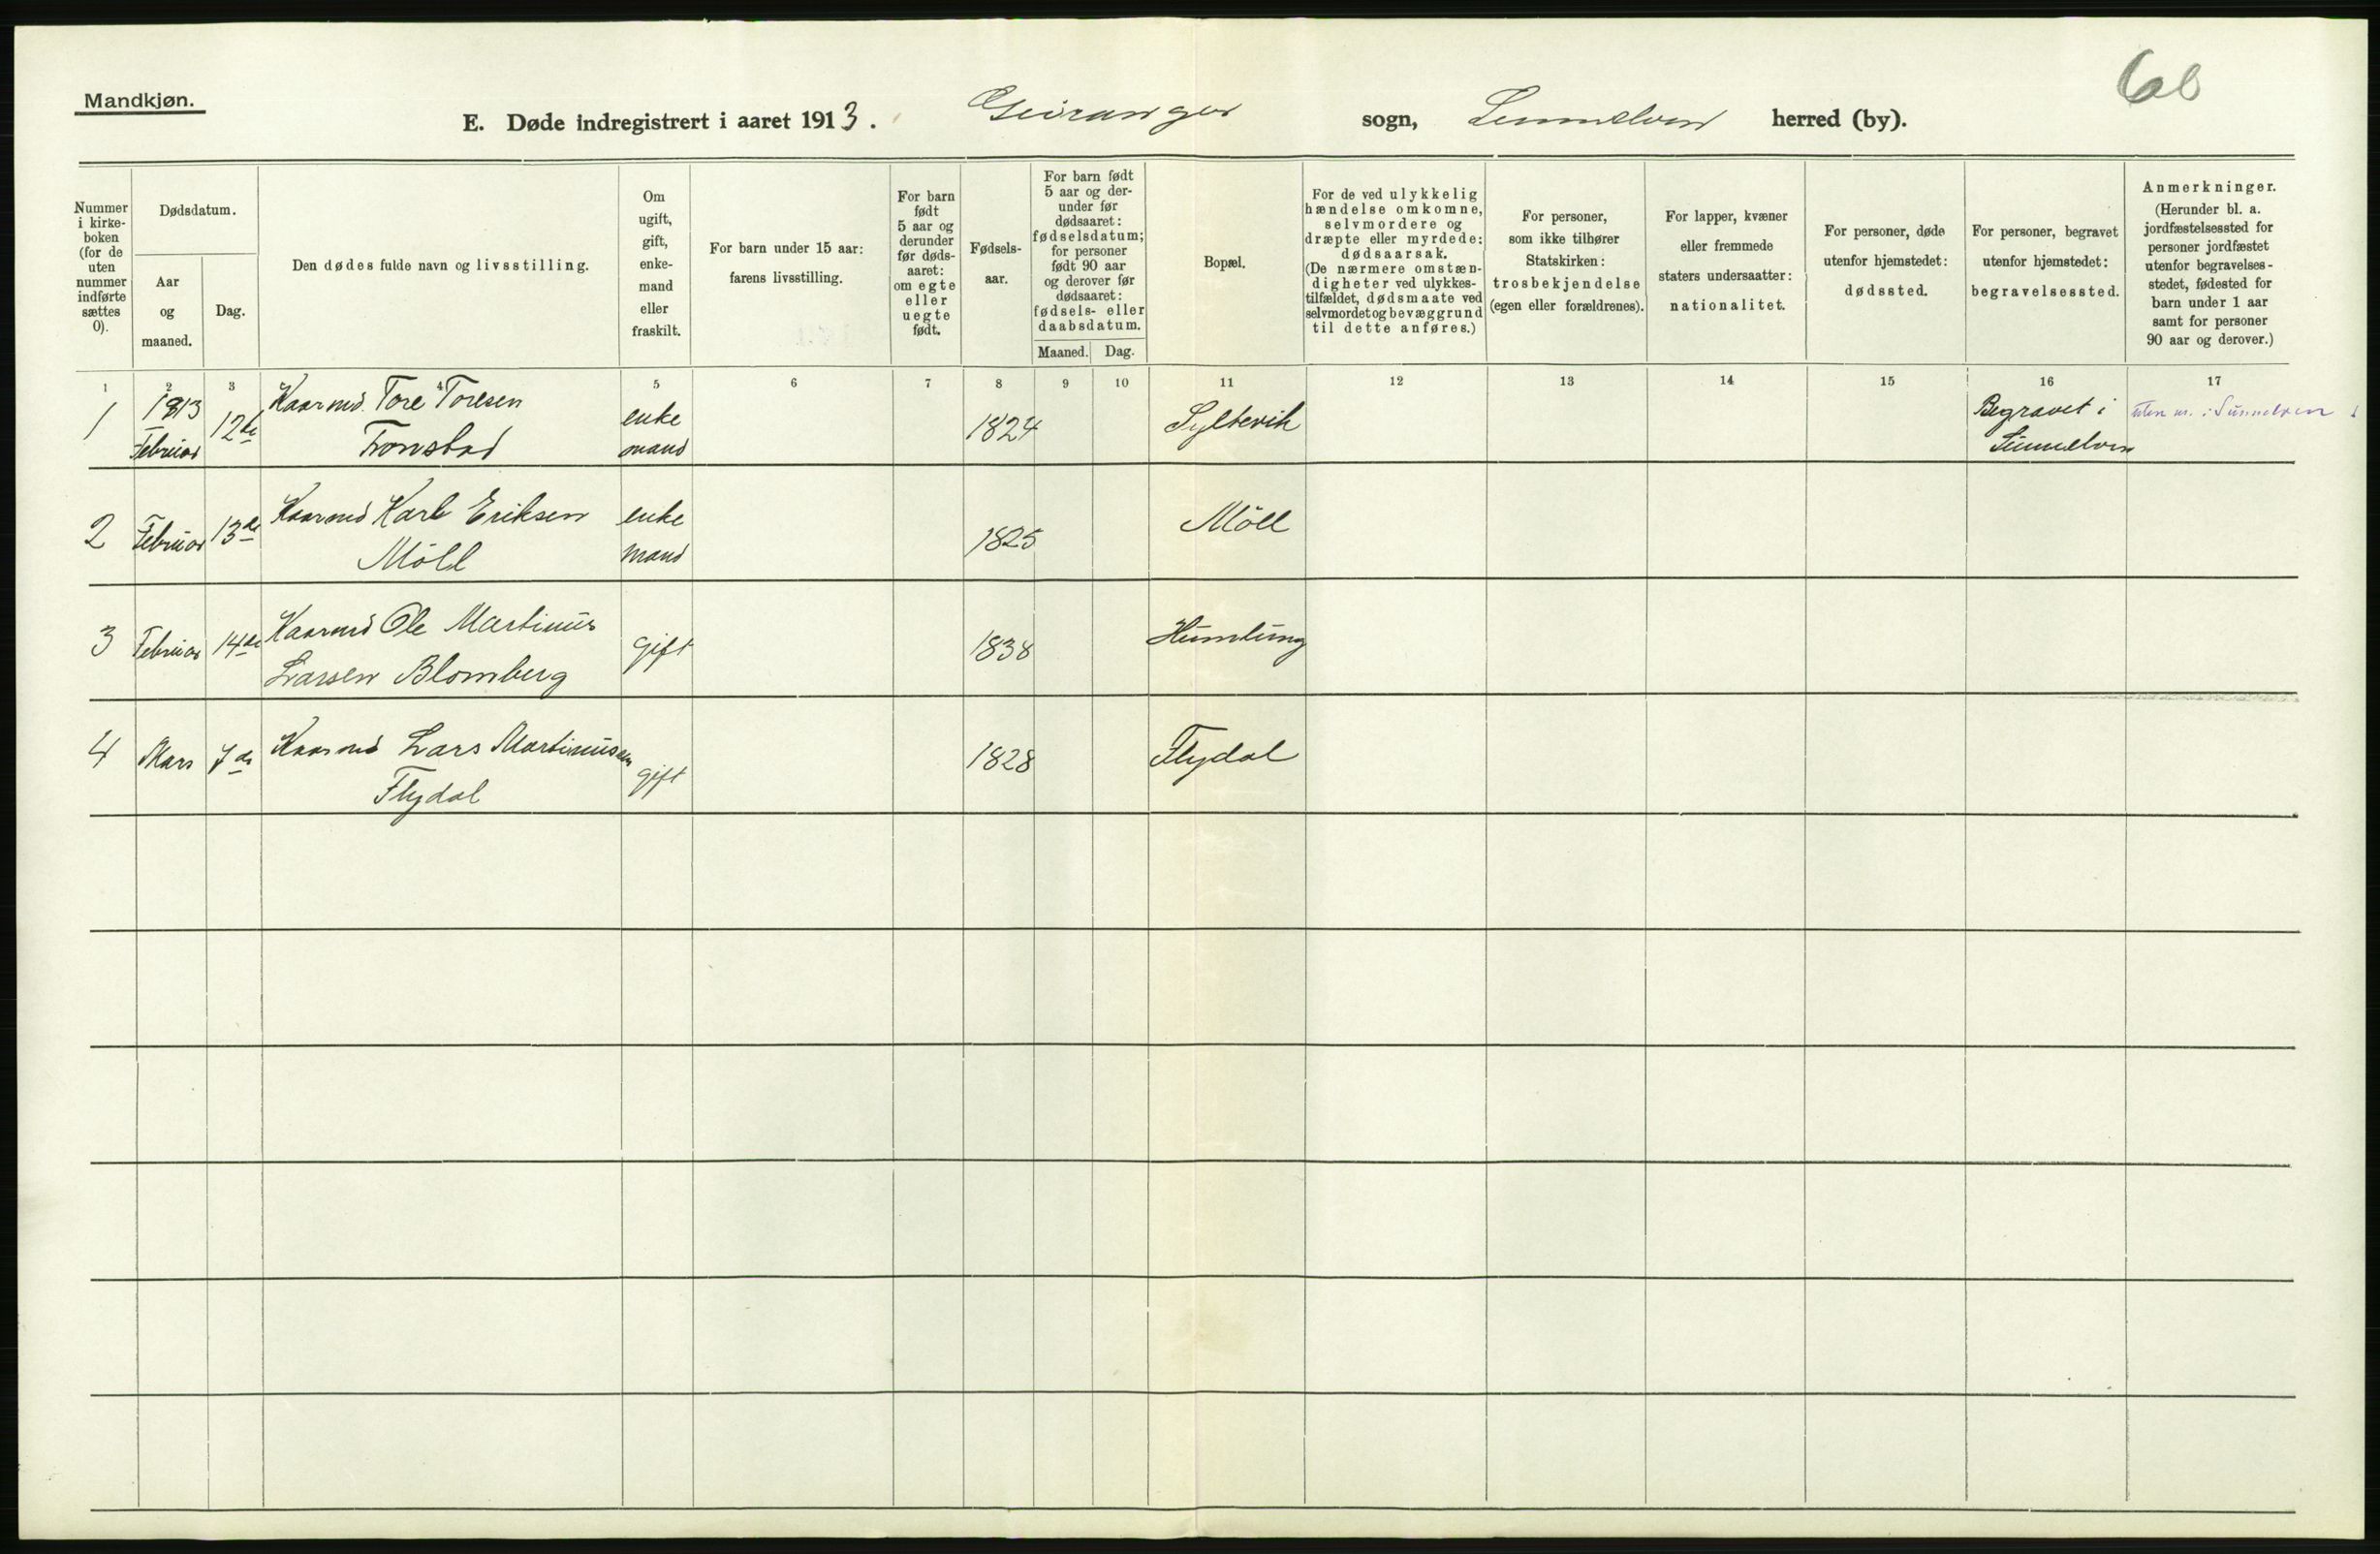 6b
Mandkjøn.
E. Døde indregistrert i aaret 1913. Geiranger sogn, Sunnelven herred (by).
Nummer i kirke-boken (for de uten nummer indførte sættes 0).
Dødsdatum.
Aar og maaned.
Dag.
Den dødes fulde navn og livsstilling.
Om ugift, gift, enke-mand eller fraskilt.
For barn under 15 aar: farens livsstilling.
For barn født 5 aar og derunder før døds-aaret: om egte eller uegte født.
Fødsels-aar.
For barn født 5 aar og der-under før dødsaaret: fødselsdatum; for personer født 90 aar og derover før dødsaaret: fødsels- eller daabsdatum.
Maaned. Dag.
Bopæl.
For de ved ulykkelig hændelse omkomne, selvmordere og dræpte eller myrdede: dødsaarsak. (De nærmere omstæn-digheter ved ulykkes-tilfældet, dødsmaate ved selvmordet og bevæggrund til dette anføres.)
For personer, som ikke tilhører Statskirken: trosbekjendelse (egen eller forældrenes).
For lapper, kvæner eller fremmede staters undersaatter: nationalitet.
For personer, døde utenfor hjemstedet: dødssted.
For personer, begravet utenfor hjemstedet: begravelsessted.
Anmerkninger. (Herunder bl. a. jordfæstelsessted for personer jordfæstet utenfor begravelses-stedet, fødested for barn under 1 aar samt for personer 90 aar og derover.)
1 2 3 4 5 6 7 8 9 10 11 12 13 14 15 16 17
1 1913 Februar 12te Kaarmd. Tore Toresen Tronstad enke mand 1824 Syltevik Begravet i Sunnelven uten nr. i Sunnelven
2 Februar 13de Kaarmd Karl Eriksen Möll enke mand 1825 Möll
3 Februar 14de Kaarmd Ole Martinus Larsen Blomberg gift 1838 Humlung
4 Mars 7de Kaarmd Lars Martinussen Flydal gift 1828 Flydal